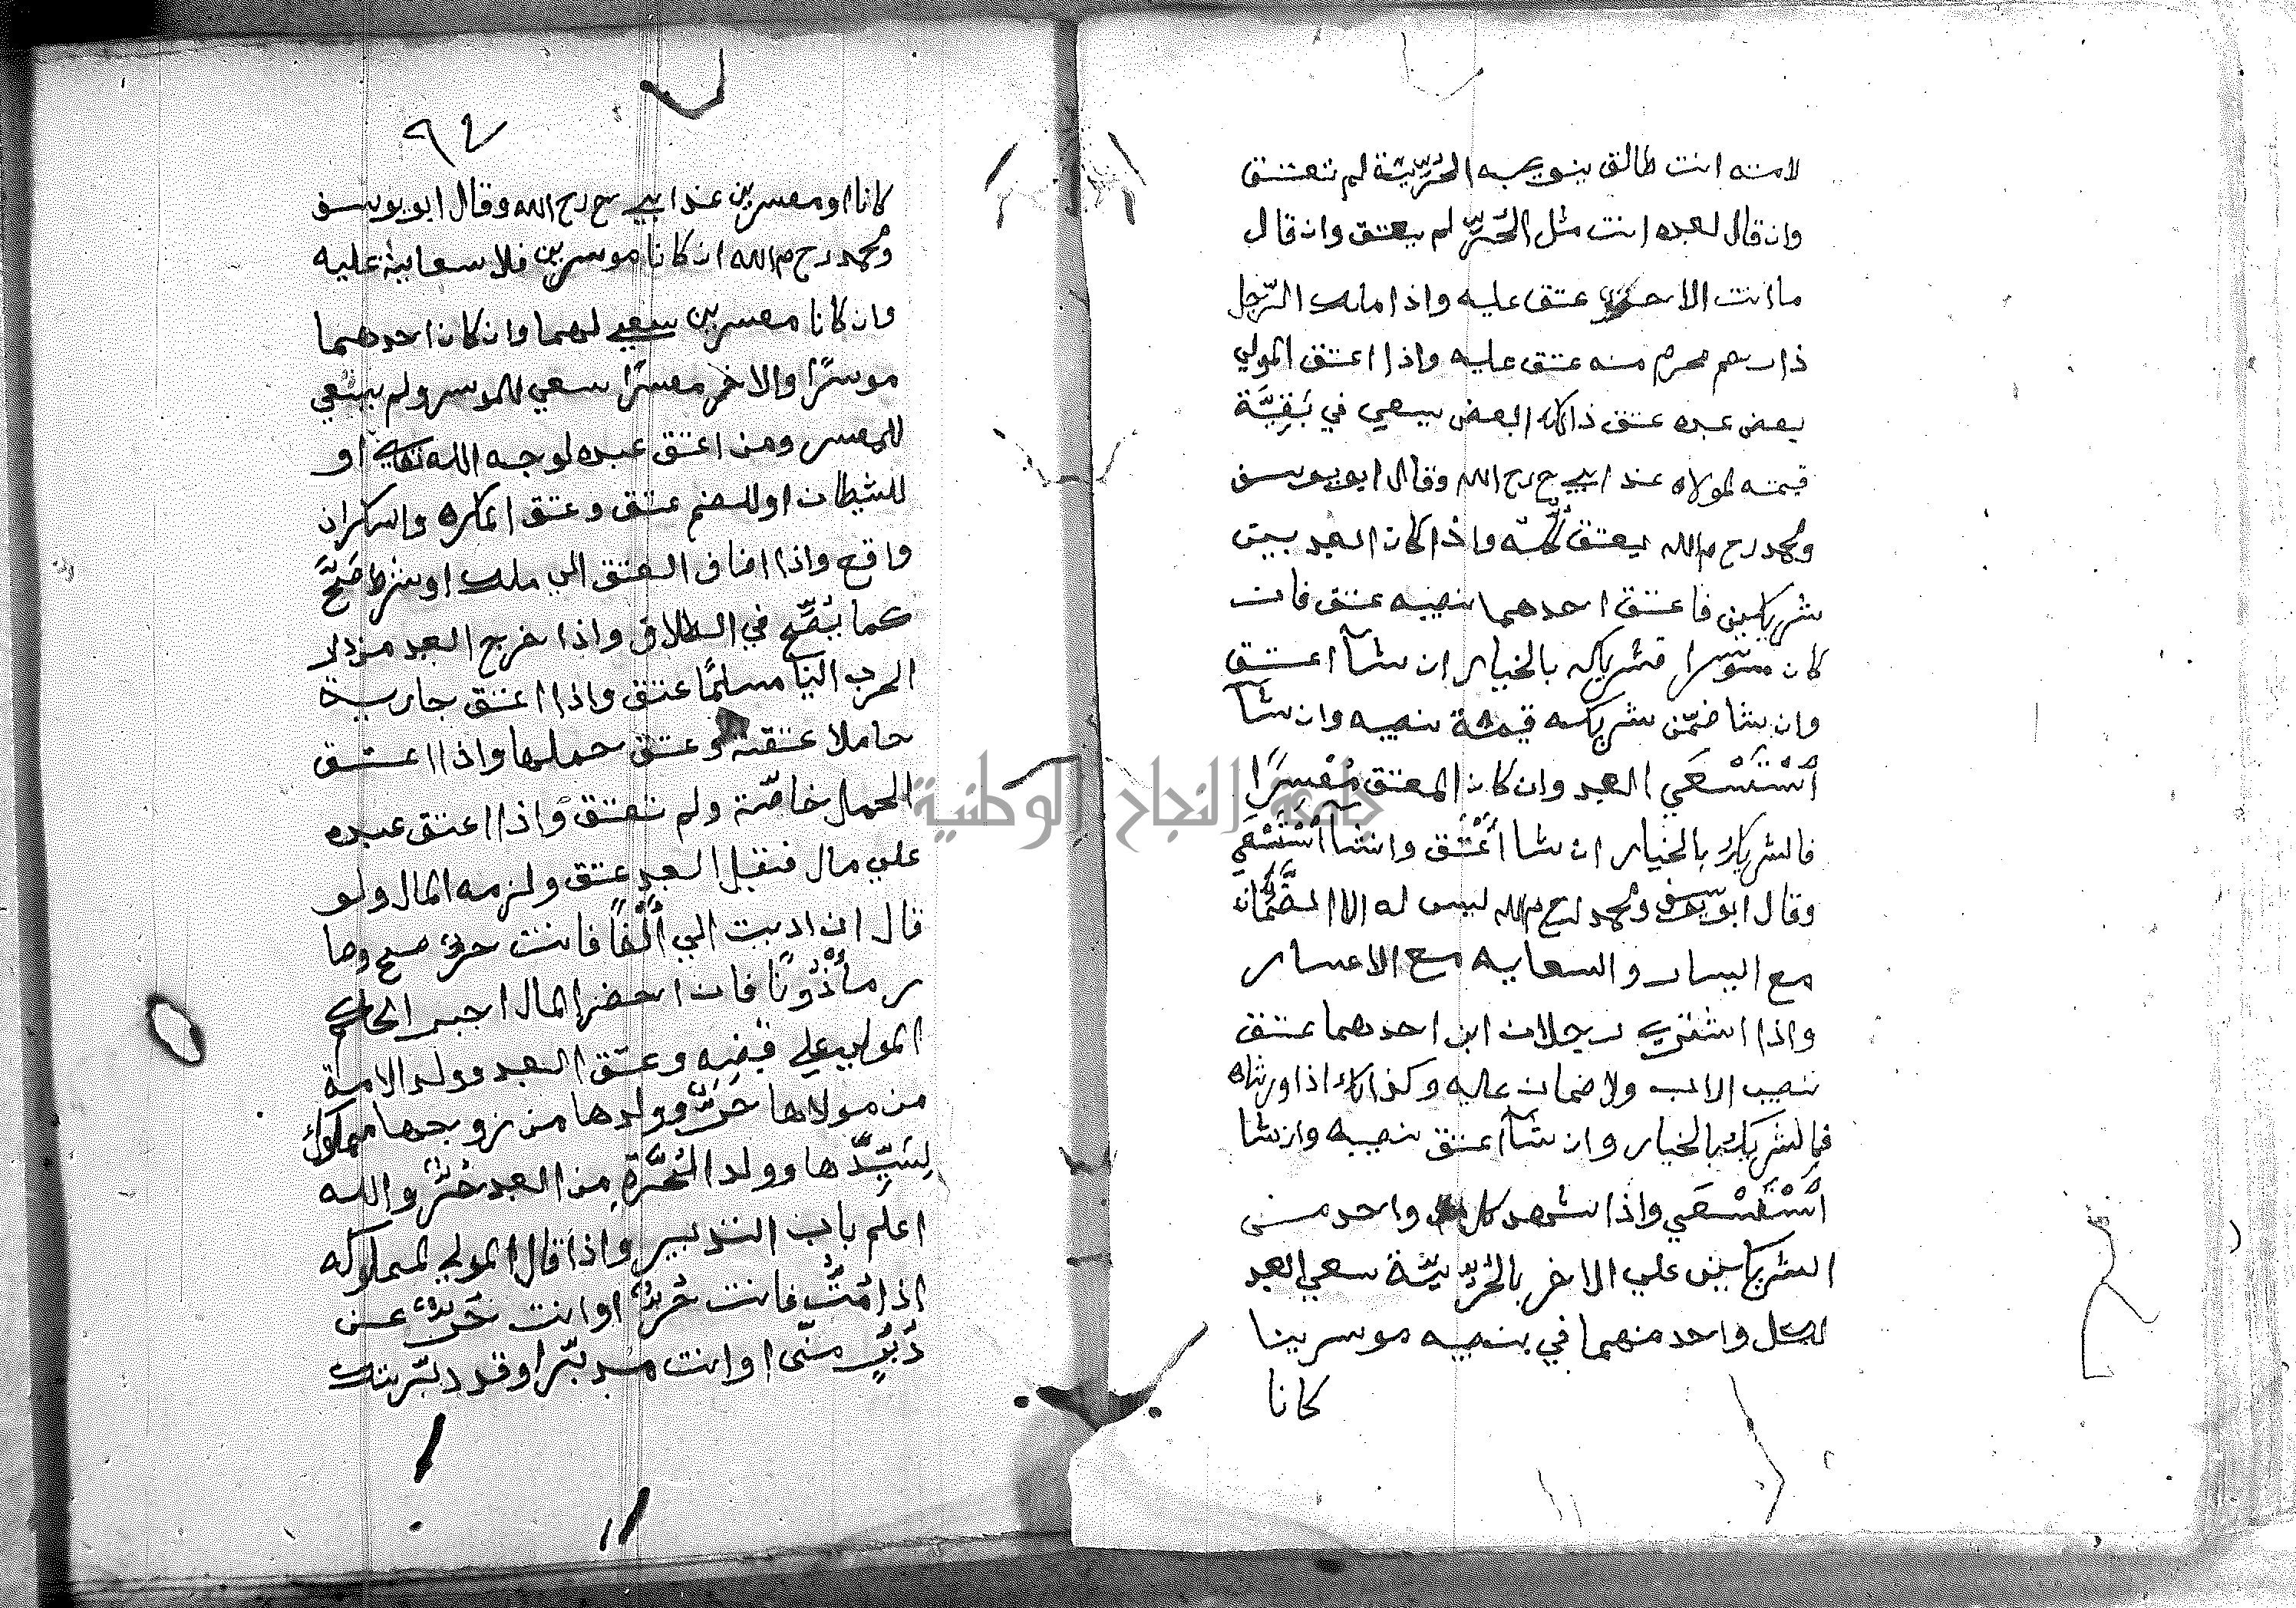 لامته انت طالق ينوي به الحُرِّيَّة لم تعتق
وان قال لعبده انت مثل الحُرِّ لم يعتق وان قال
ما انت الا حر عتق عليه واذا ملك الرّجل
ذا رحم محرم منه عتق عليه واذا اعتق المولي
بعض عبده عتق ذالك البعض يسعي في بَقِيَّة
قيمته لمولاه عند ابي ح رح الله وقال ابو يوسف
ومُحمد رحم الله يعتق كُلّه واذا كان العبد بين
شريكين فاعتق احدهما نصيبه عتق فان
كان موسرا فشريكه بالخيار ان شآ اعتق
وان شا ضمّن شريكه قيمة نصيبه وان شآ
اسْتَسْعَي العبد وان كان المعتق مُعْسِرًا
فالشريك بالخيار ان شا أَعْتَق وانشا اسْتَسْعَي
وقال ابو يوسف ومُحمد رح م الله ليس له الا الضَّمان
مع اليسار والسعايه مع الاعسار
واذا اشتري رجلان ابن احدهما عتق
نصيب الاب ولا ضمان عليه وكذالك اذا ورثاه
فالشريك بالخيار وان شآ اعتق نصيبه وان شا
اسْتَسْعَي واذا شهد كل واحد من
الشريكين علي الاخر بالحُرّيّة سعي العبد
لكل واحد منهما في نصيبه موسرينا
كانا
٩٢
كانا او معسرين عند ابي ح رح الله وقال ابو يوسف
ومُحمد رح م الله ان كانا موسرين فلا سعاية عليه
وان كانا معسرين سعي لهما وان كان احدهما
موسرًا والاخر معسرًا سعي للموسر ولم يسعي
للمعسر ومن اعتق عبده لوجه الله تعالي او
للشيطان او للصنم عتق وعتق المكره والسكران
واقع واذا اضاف العتق الي ملك او شرط صَحَّ
كما يَصِّح في الطلاق واذا خرج العبد من دار
الحرب الينا مسلمًا عتق واذا اعتق جارية
حاملا عتقت وعتق حملها واذا اعتق
الحمل خاصّة ولم تعتق واذا اعتق عبده
علي مال فقبل العبد عتق ولزمه المال ولو
قال ان اديت الي أَلْفًا فانت حرٌ صح وصا
ر مأْذُونًا فان احضر المال اجبر الحاكم
المولي علي قبضه وعتق العبد وولد الامة
من مولاها حُرٌّ وولدها من زوجها مملوك
لِسَيِّدها وولد الحُرَّةِ من العبد حُرٌ والله
اعلم باب التدبير واذا قال المولي لمملوكه
اذا مُتُّ فانت حُرٌ او انت حُرٌّ عن
دُبُرٍ منّى او انت مدبّر او قد دبّرتك